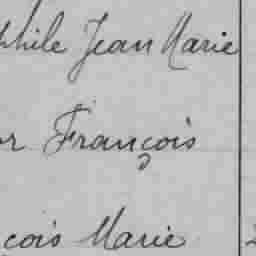 phile Jean Marie
or François
çois Marie